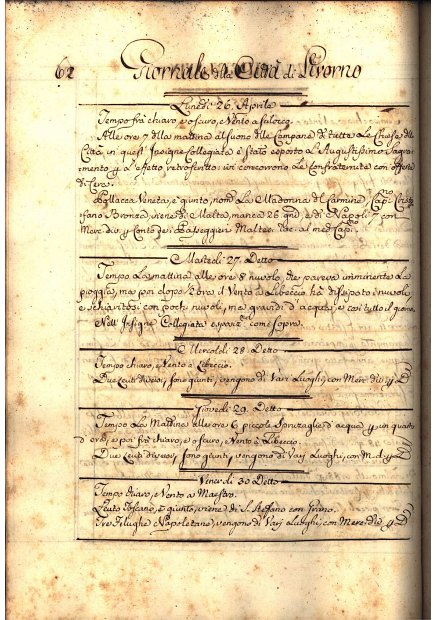 62 Giornale della Città di Livorno
Lunedì 26. Aprile
Tempo frà chiaro e oscuro, e Vento a
Alle ore 7 della mattina al suono delle Campane di tutte le Chiese della
Città in quest' Insigne Collegiata è stato esposto il Augustissimo Sagra-
mento p l'effetto retroscritto: ivi concorrono le Confraternite con offerte
di Cera.
Pollacca Veneta, è giunto, nom. La Madonna del Carmine, Capno Cristo-
fano Bronza, viene di Malta, manca 26 gni, e di Napoli 7 con
Merc. div. p Conto de Passeggieri Maltesi Rac. al med. Capno.
Martedì 27. Detto
Tempo La mattina alle ore 8 nuvolo, che pareva imminente La
pioggia, ma poi dopo 2 ore il Vento à Libeccio hà dissipato i nuvoli,
e schiaritosi con pochi nuvoli, ma grandi d'acqua, e così tutto il giorno.
Nell' Insigne Collegiata esposizne come sopra.
Mercoldì 28. Detto
Tempo chiaro, e Vento à Libeccio.
Due Leuti diversi, sono giunti, vengono di Varj Luoghi, con Merc. div. p D
Giovedì 29. Detto
Tempo La Mattina alle ore 6 piccole Spruzaglie d'acqua p un quarto
d'ora, e poi frà chiaro, e oscuro, e Vento à Libeccio.
Due Leuti diversi, sono giunti, vengono di Varj Luoghi, con M. d. p D
Venerdì 30 Detto
Tempo chiaro, e Vento a Maestro.
Leuto Toscano, è giunto, viene di S. Stefano con Grano.
Tre Filughe Napoletane, vengono di Varj Luoghi, con Merc. div. p D